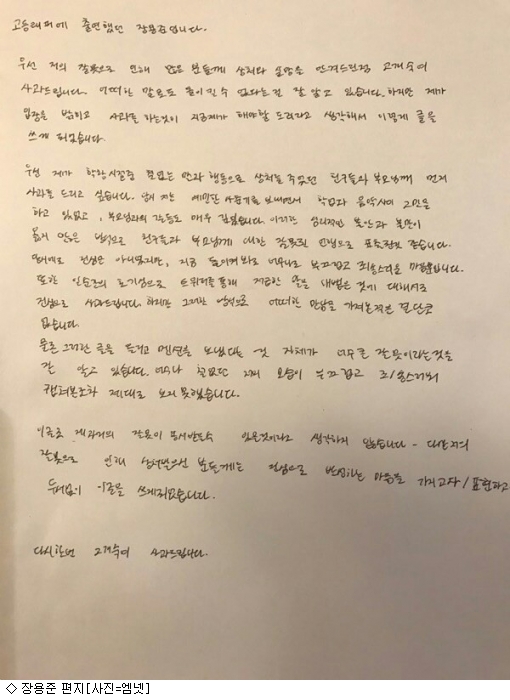 고등래퍼에 출연했던 장용준입니다.
우선 저의 잘못으로 인해 많은 분들께 상처와 실망을 안겨드린점 고개숙여
사과드립니다. 어떠한 말로도 돌이킬 수 없다는걸 잘 알고 있습니다. 하지만 제가
입장을 밝히고 사과를 하는것이 지금제가 해야할 도리라고 생각해서 이렇게 글을
쓰게 되었습니다.
우선 제가 학창시절중 철없는 말과 행동으로 상처를 주었던 친구들과 부모님께 먼저
사과를 드리고 싶습니다. 당시 저는 예민한 사춘기를 보내면서 학업과 음악사이 고민을
하고 있었고, 부모님과의 갈등도 매우 깊었습니다. 이러한 심리적인 불안과 불만이
옳지 않은 방식으로 친구들과 부모님께 대한 잘못된 언행으로 표출된것 같습니다.
절대로 진심은 아니었지만, 지금 돌이켜봐도 너무나도 부끄럽고 죄송스러운 마음뿐입니다.
또한 일순간의 호기심으로 트위터를 통해 저급한 말을 내뱉은 것에 대해서도
진심으로 사과드립니다. 하지만 그러한 방식으로 어떠한 만남을 가져본적은 결단코
없습니다.
물론 그러한 글을 뜨겁고 멘션을 보냈다는 것 자체가 너무 큰 잘못이라는것을
잘 알고 있습니다. 너무나 철없던 저의 모습이 부끄럽고 죄송스러워
캡쳐본조차 제대로 보지 못했습니다.
이글로 제과거의 잘못이 무시받을수 있을것이라고 생각하지 않습니다. 다만 저의
잘못으로 인해 상처받으신 분들께는 진심으로 반성하는 마음을 가지고자/표현하고
두서없이 이글을 쓰게되었습니다.
다시한번 고개숙여 사과드립니다.
◇ 장용준 편지[사진=엠넷]